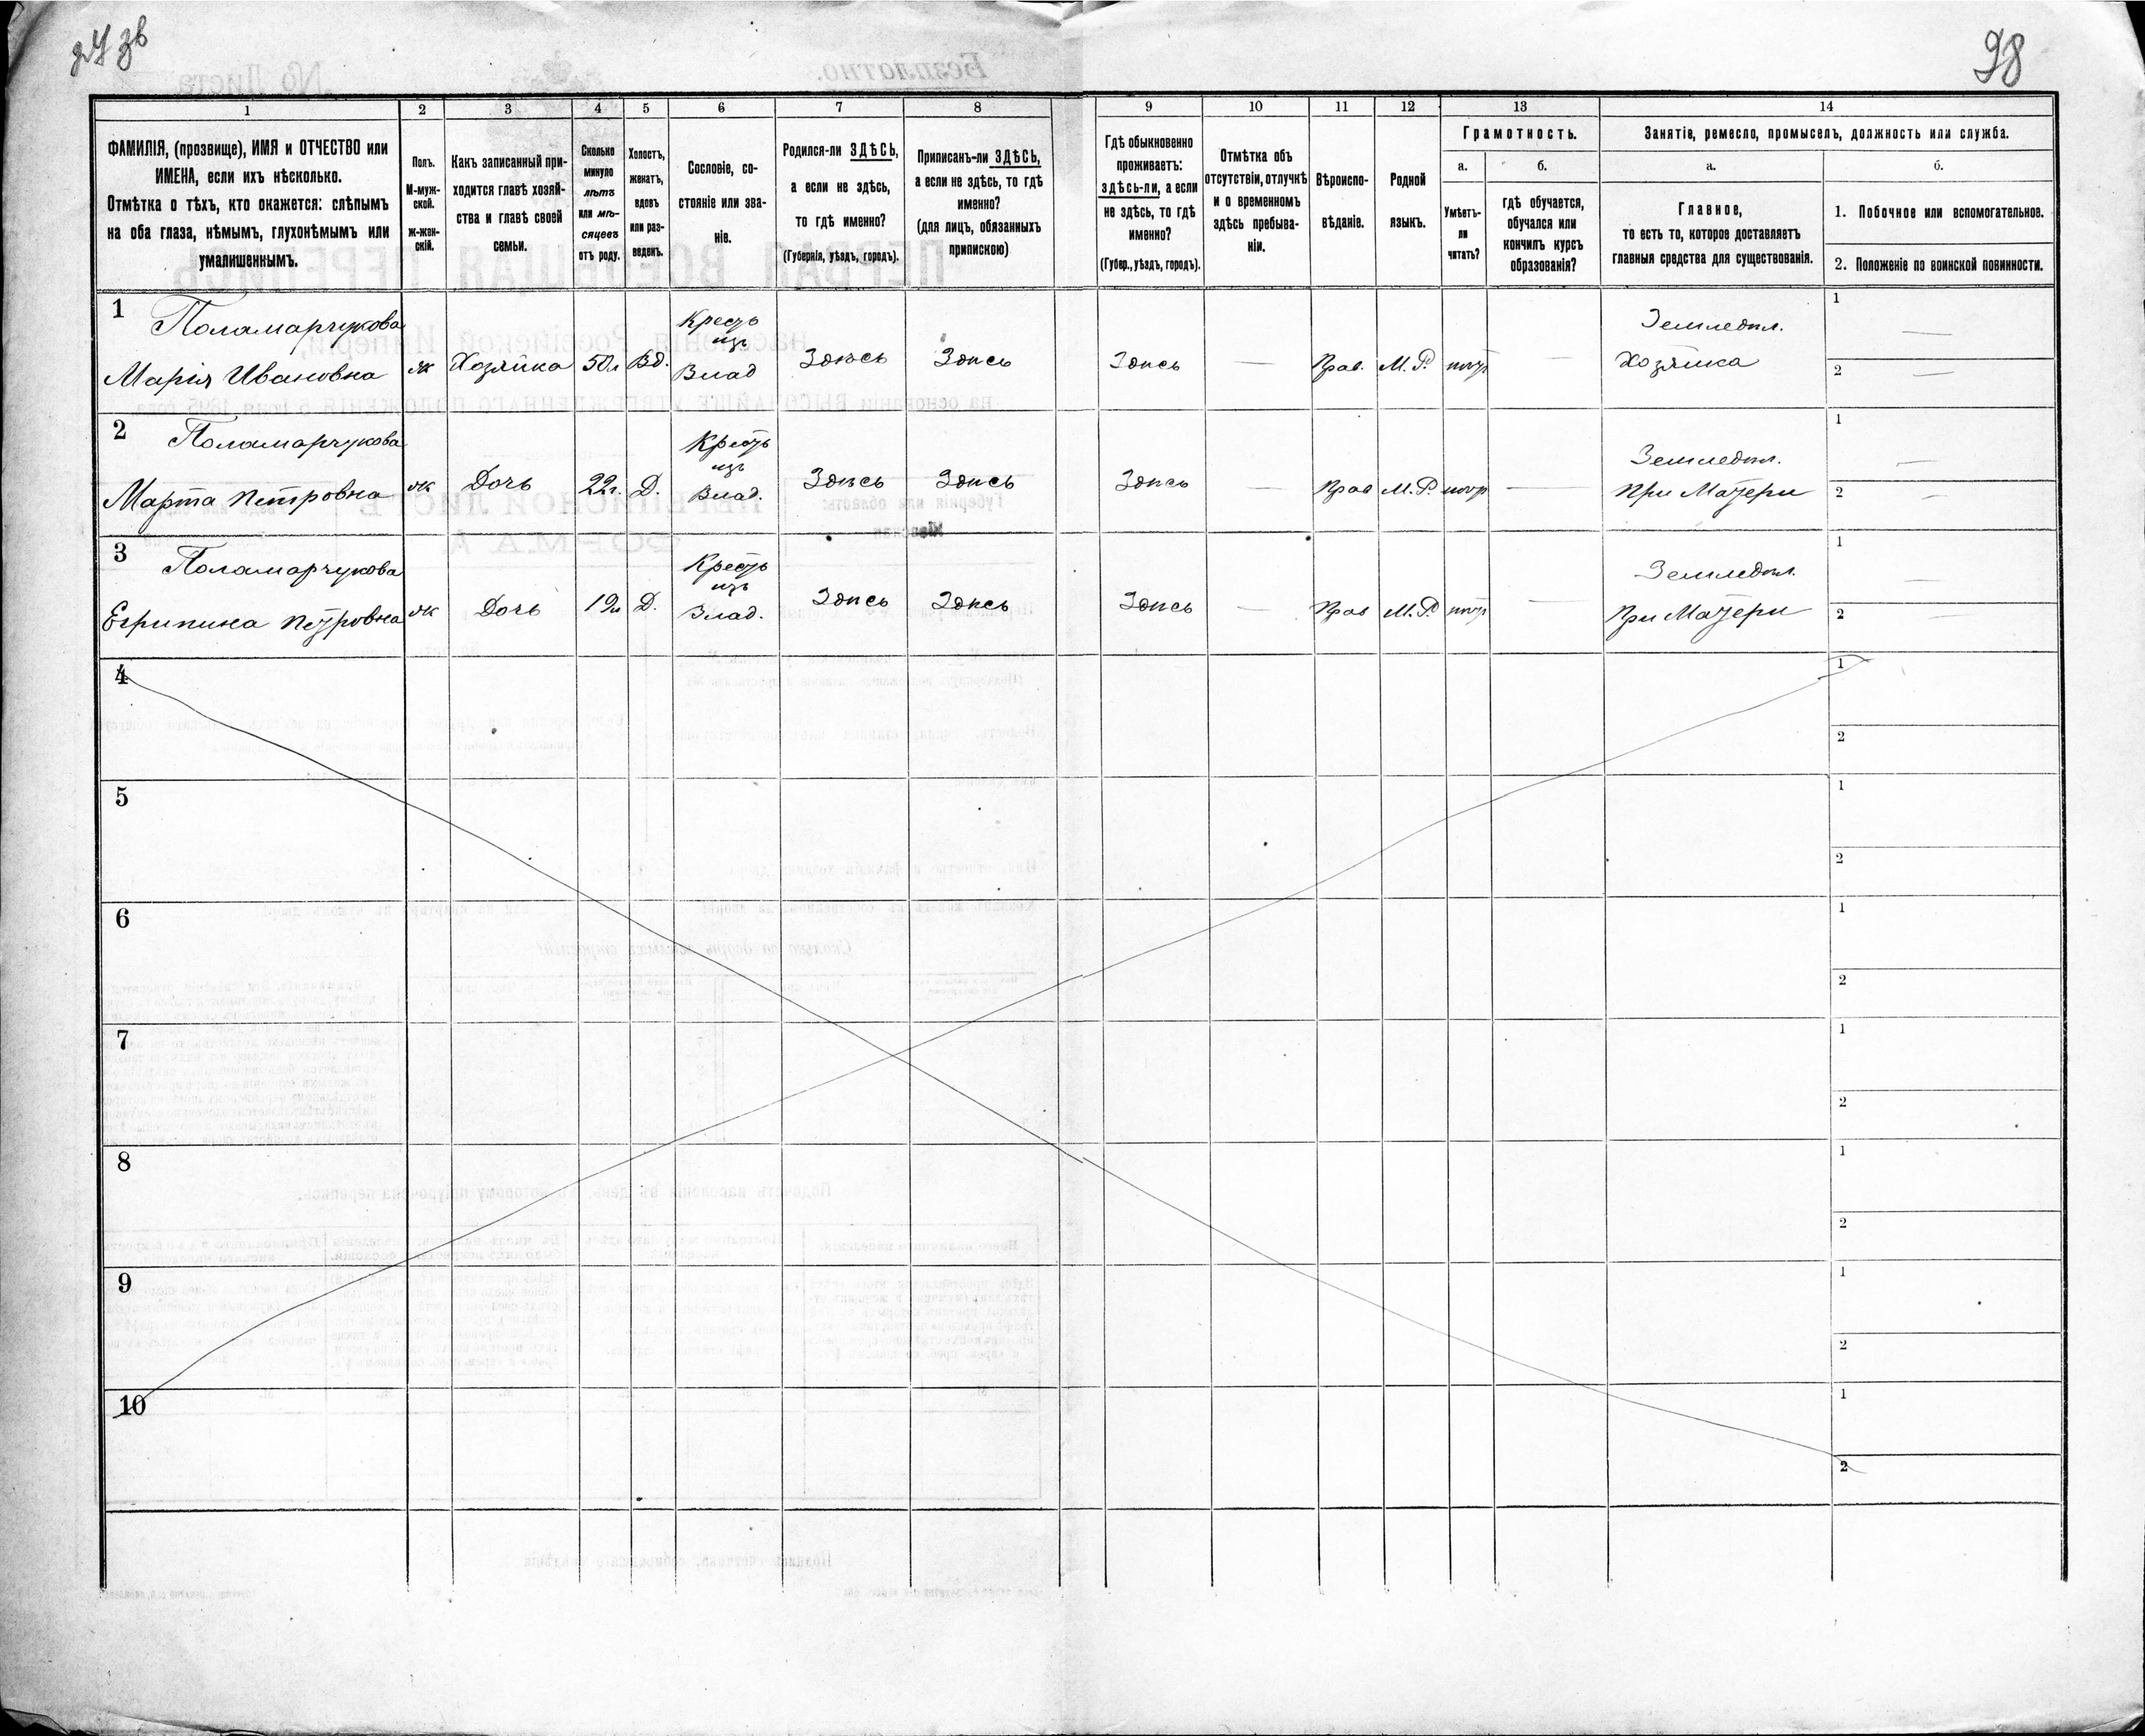 98
1
2
3
4
5
6
7
8
9
10
11
12
13
14
ФАМИЛІЯ, (прозвище), ИМЯ и ОТЧЕСТВО или
ИМЕНА, если ихъ нѣсколько.
Отмѣтка о тѣхъ, кто окажется: слѣпымъ
на оба глаза, нѣмымъ, глухонѣмымъ или
умалишеннымъ.
Полъ.
М-муж-
ской.
ж-жен-
скій.
Какъ записанный при-
ходится главѣ хозяй-
ства и главѣ своей
семьи.
Сколько
минуло
лѣтъ
или мѣ-
сяцевъ
отъ роду.
Холостъ,
женатъ,
вдовъ
или раз-
веденъ.
Сословіе, со-
стояніе или зва-
ніе.
Родился-ли ЗДѢСЬ,
а если не здѣсь,
то гдѣ именно?
(Губернія, уѣздъ, городъ).
Приписанъ-ли ЗДѢСЬ,
а если не здѣсь, то гдѣ
именно?
(для лицъ, обязанныхъ
припискою)
Гдѣ обыкновенно
проживаетъ:
здѣсь-ли, а если
не здѣсь, то гдѣ
именно?
(Губер., уѣздъ, городъ).
Отмѣтка объ
отсутствіи, отлучкѣ
и о временномъ
здѣсь пребыва-
ніи.
Вѣроиспо-
вѣданіе.
Родной
языкъ.
Грамотность.
а.
Умѣетъ-
ли
читать?
б.
гдѣ обучается,
обучался или
кончилъ курсъ
образованія?
Занятіе, ремесло, промыселъ, должность или служба.
а.
Главное,
то есть то, которое доставляетъ
главныя средства для существованія.
б.
1. Побочное или вспомогательное.
2. Положеніе по воинской повинности.
1
Поламарчукова
Марія Ивановна
ж
Хозяйка
50л
Вд.
Крестъ
изъ
Влад
Здѣсь
Здѣсь
Здѣсь
—
Прав.
М. Р.
—
Земледѣл.
Хозяйка
1 —
2 —
2
Поламарчукова
Марта Петровна
ж
Дочь
22г.
Д.
Крестъ
изъ
Влад.
Здѣсь
Здѣсь
Здѣсь
—
Прав
М. Р.
—
Земледѣл.
При Матери
1 —
2 —
3
Поламарчукова
Егрипина Петровна
ж
Дочь
19л
Д.
Крестъ
изъ
Влад.
Здѣсь
Здѣсь
Здѣсь
—
Прав
М. Р.
—
Земледѣл.
При Матери
1 —
2 —
4
1
2
5
1
2
6
1
2
7
1
2
8
1
2
9
1
2
10
1
2